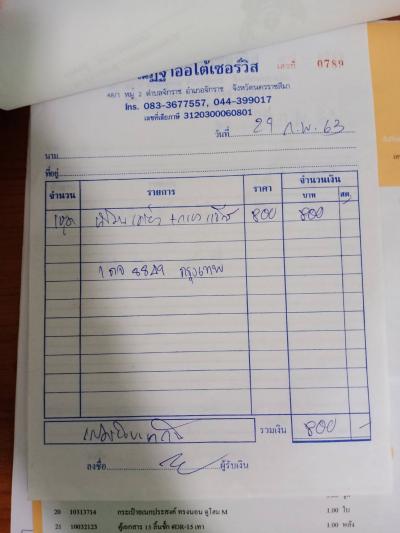 ออโต้เซอร์วิส เลขที่ 0789
48/1 หมู่ 2 ตำบลจักราช อำเภอจักราช จังหวัดนครราชสีมา
โทร. 083-3677557, 044-399017
เลขที่เสียภาษี 3120300060801
วันที่ 29 ก.พ. 63
นาม
ที่อยู่
จำนวน รายการ ราคา จำนวนเงิน
บาท สต.
1ชุด 800 800
1กจ 8849 กรุงเทพ
รวมเงิน 800 -
ลงชื่อ ผู้รับเงิน
20 10313714 กระเป๋าอเนกประสงค์ ทรงนอน ดูโฮม M 1.00 ใบ
21 10032123 ตู้เอกสาร 15 ลิ้นชัก #DR-15 เทา 1.00 หลัง